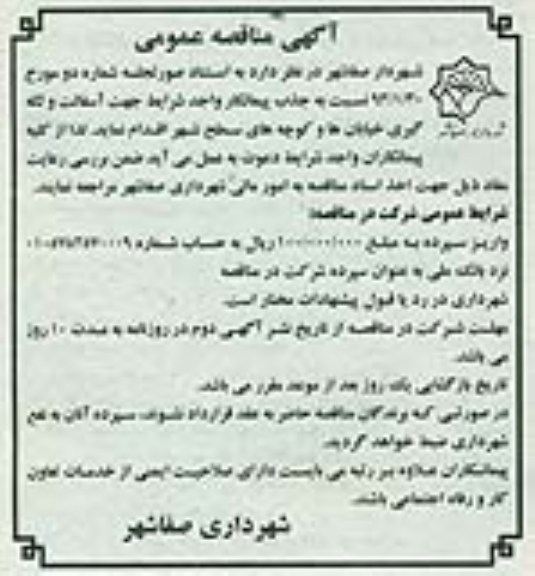 آگهی مناقصه عمومی
شهردار صفاشهر در نظر دارد به استناد صورتجلسه شماره دو مورخ
نسبت به جذب پیمانکار واجد شرایط جهت آسفالت و لکه
گیری خیابان ها و کوچه های سطح شهر اقدام نماید. لذا از کلیه
پیمانکاران واجد شرایط دعوت به عمل می آید ضمن بررسی رعایت
مفاد ذیل جهت اخذ اسناد مناقصه به امور مالی شهرداری صفاشهر مراجعه نمایند.
شرایط عمومی شرکت در مناقصه:
واریز سپرده به مبلغ ریال به حساب شماره
نزد بانک ملی به عنوان سپرده شرکت در مناقصه
شهرداری در رد یا قبول پیشنهادات مختار است.
مهلت شرکت در مناقصه از تاریخ نشر آگهی دوم در روزنامه به مدت ۱۰ روز
می باشد.
تاریخ بازگشایی یک روز بعد از موعد مقرر می باشد.
در صورتی که برندگان مناقصه حاضر به عقد قرارداد نشوند، سپرده آنان به نفع
شهرداری ضبط خواهد گردید.
پیمانکاران علاوه بر رتبه می بایست دارای صلاحیت ایمنی از خدمات تعاون
کار و رفاه اجتماعی باشند.
شهرداری صفاشهر